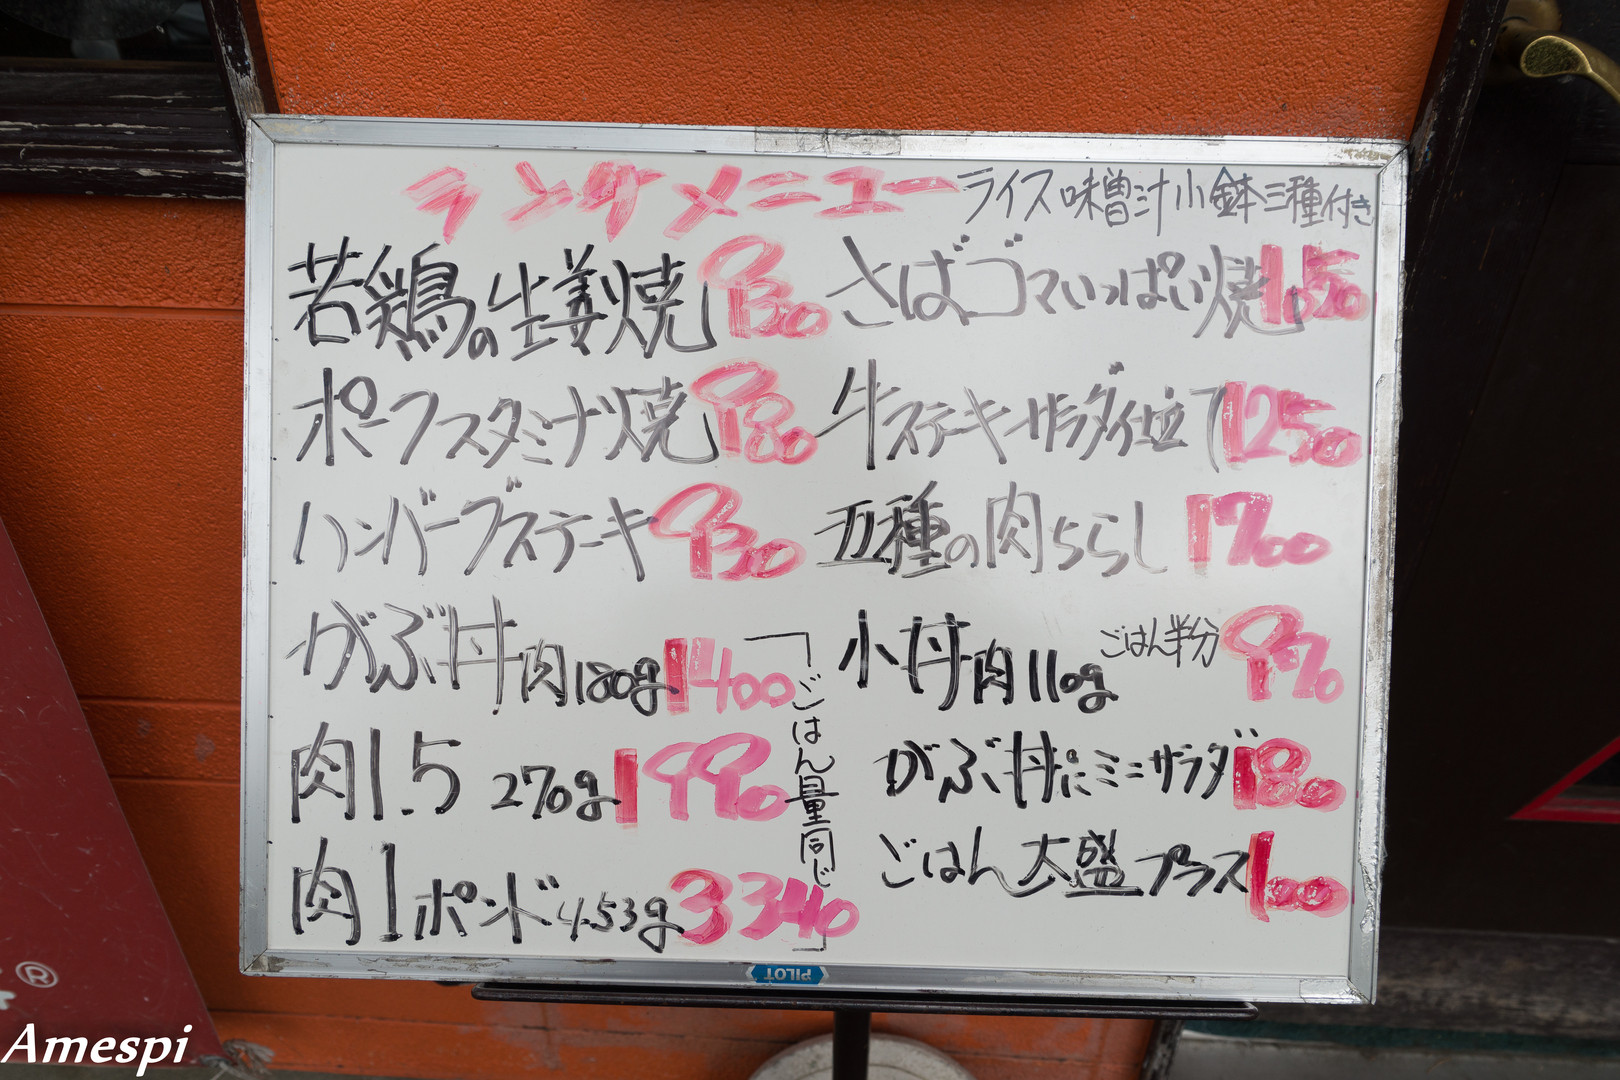 ランチメニュー ライス味噌汁小鉢三種付き
若鶏の生姜焼 930
さばゴマいっぱい焼 1050
ポークスタミナ焼 980
牛ステーキサラダ仕立て 1250
ハンバーグステーキ 930
五種の肉ちらし 1700
がぶ丼 肉180g 1400
小丼 肉110g ごはん半分 970
肉1.5 270g 1990
がぶ丼にミニサラダ 180
肉1ポンド 453g 3340
ごはん大盛プラス 100
「ごはん量同じ」
PILOT
®
Amespi